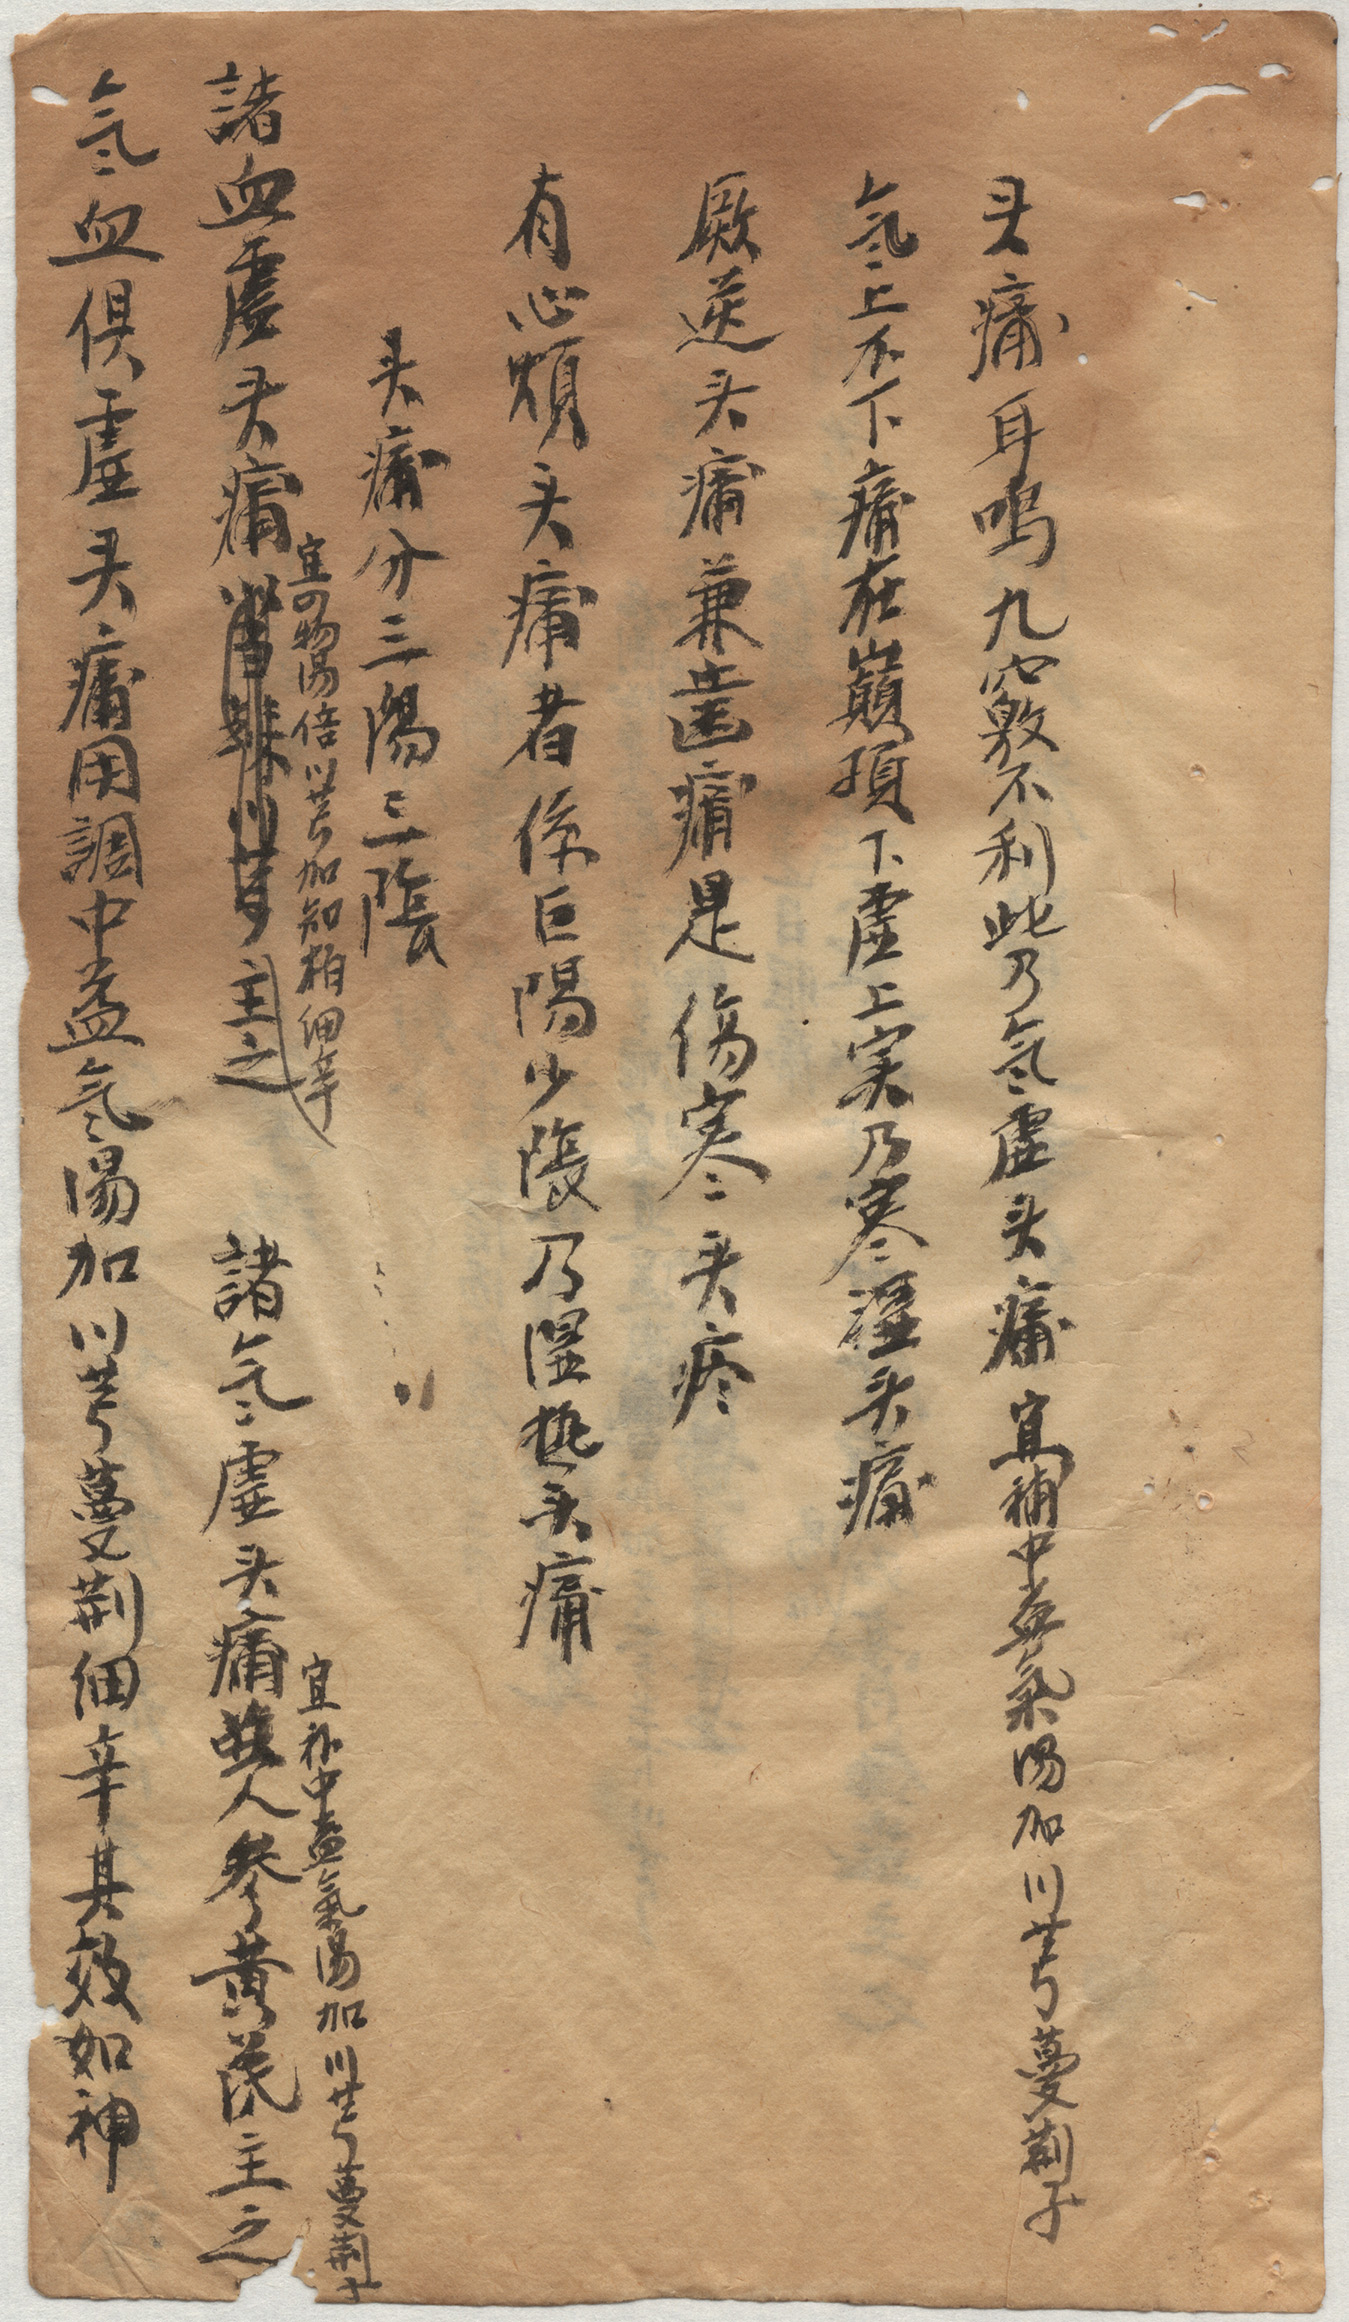 头痛耳鳴九竅不利此乃氣虛头痛宜補中益氣湯加川芎蔓荆子
氣上不下痛在巔頂下虛上实乃寒湿头痛
厥逆头痛兼齒痛是傷寒头疼
有心煩头痛者係巨陽少陰乃湿热头痛
头痛分三陽三陰
宜四物湯倍川芎加知柏细辛
宜补中益氣湯加川芎蔓荆子
諸血虛头痛當歸川芎主之
諸氣虛头痛人參黄芪主之
氣血俱虛头痛用調中益氣湯加川芎蔓荆细辛其效如神